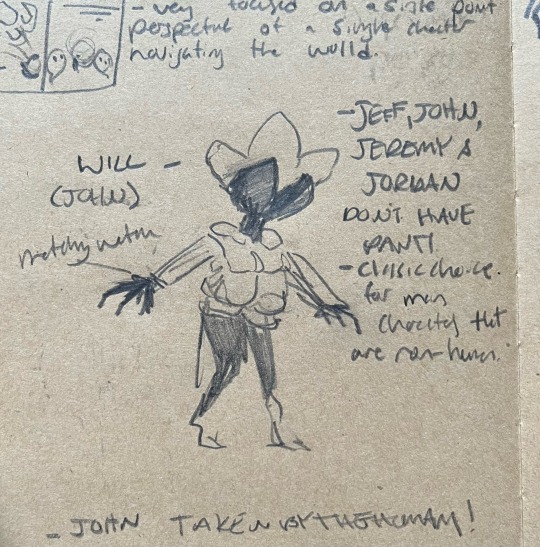 - very focused on a single point
perspective of a single character
navigating the world.
- JEFF, JOHN,
JEREMY &
JORDAN
DON'T HAVE
PANT!
- classic choice.
for man
characters that
are non-human.
WILL -
(JOHN)
matching
- JOHN TAKEN BY THE HUMAN!